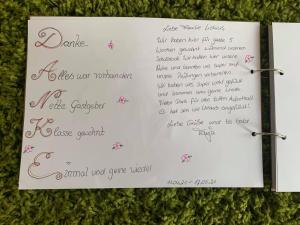 Danke
Alles war vorhanden
Nette Gastgeber
Klasse gewohnt
Einmal und gerne wieder!
Liebe Familie
Wir haben hier für ganze 5
Wochen gewohnt während unseren
Wir hatten hier unsere
Ruhe und konnten uns super auf
unsere Prüfungen vorbereiten.
Wir haben uns sehr wohl gefühlt
und kommen sehr gerne wieder.
Vielen Dank für den tollen Aufenthalt
Es hat sich wie Urlaub angefühlt!
Liebe Grüße und bis bald